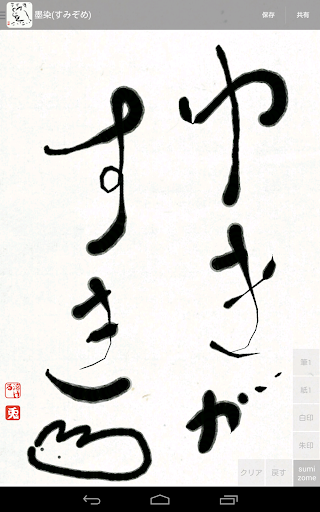 墨染(すみぞめ)
保存
共有
ゆきが
すき
筆1
紙1
白印
朱印
クリア
戻す
sumi
zome
兎